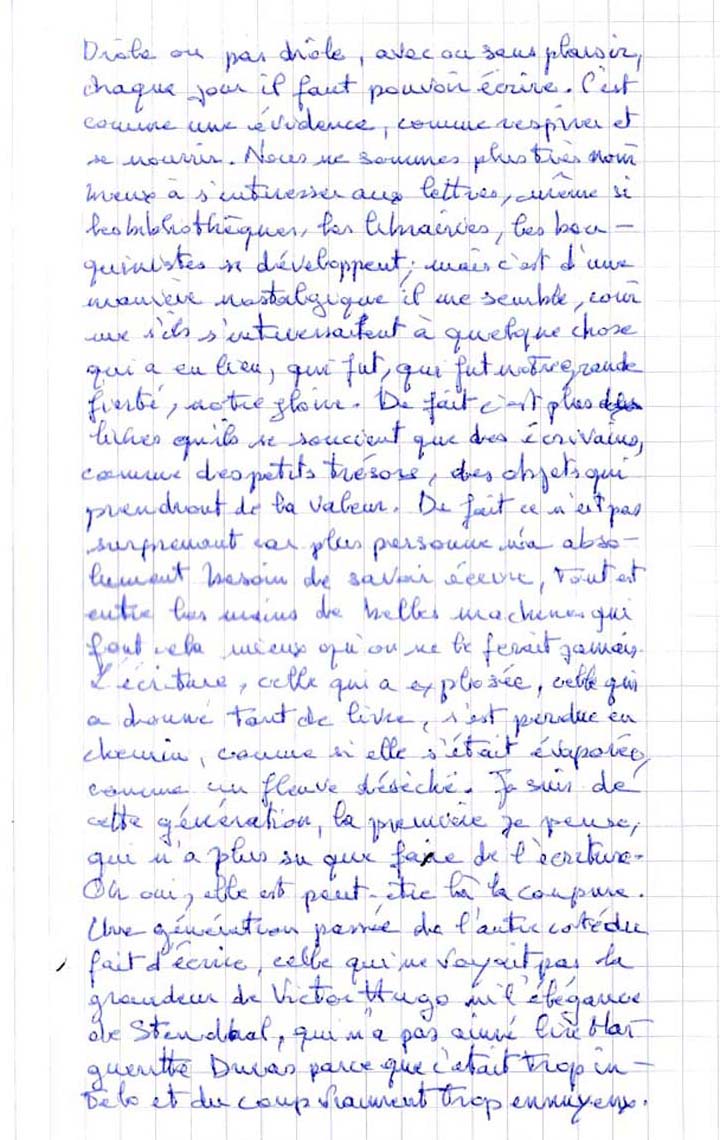 Drôle ou pas drôle, avec ou sans plaisir,
chaque jour il faut pouvoir écrire. C'est
comme une évidence, comme respirer et
se nourrir. Nous ne sommes plus très nom
breux à s'intéresser aux lettres, même si
les bibliothèques, les librairies, les bou-
quinistes se développent; mais c'est d'une
manière nostalgique il me semble, com
me s'ils s'intéressaient à quelque chose
qui a eu lieu, qui fut, qui fut notre grande
fierté, notre gloire. De fait c'est plus des
livres qu'ils se soucient que des écrivains,
comme des petits trésors, des objets qui
prendront de la valeur. De fait ce n'est pas
surprenant car plus personne n'a abso-
lument besoin de savoir écrire, tout est
entre les mains de belles machines qui
font cela mieux qu'on ne le ferait jamais.
L'écriture, celle qui a explosée, celle qui
a donné tant de livre, s'est perdue en
chemin, comme si elle s'était évaporée,
comme un fleuve déséché. Je suis de
cette génération, la première je pense,
qui n'a plus su que faire de l'écriture.
Oh oui, elle est peut-être là la coupure.
Une génération passée de l'autre coté du
fait d'écrire, celle qui ne voyait pas la
grandeur de Victor Hugo ni l'élégance
de Stendhal, qui n'a pas aimé lire Mar
guerite Duras parce que c'était trop in-
tello et du coup vraiment trop ennuyeux.